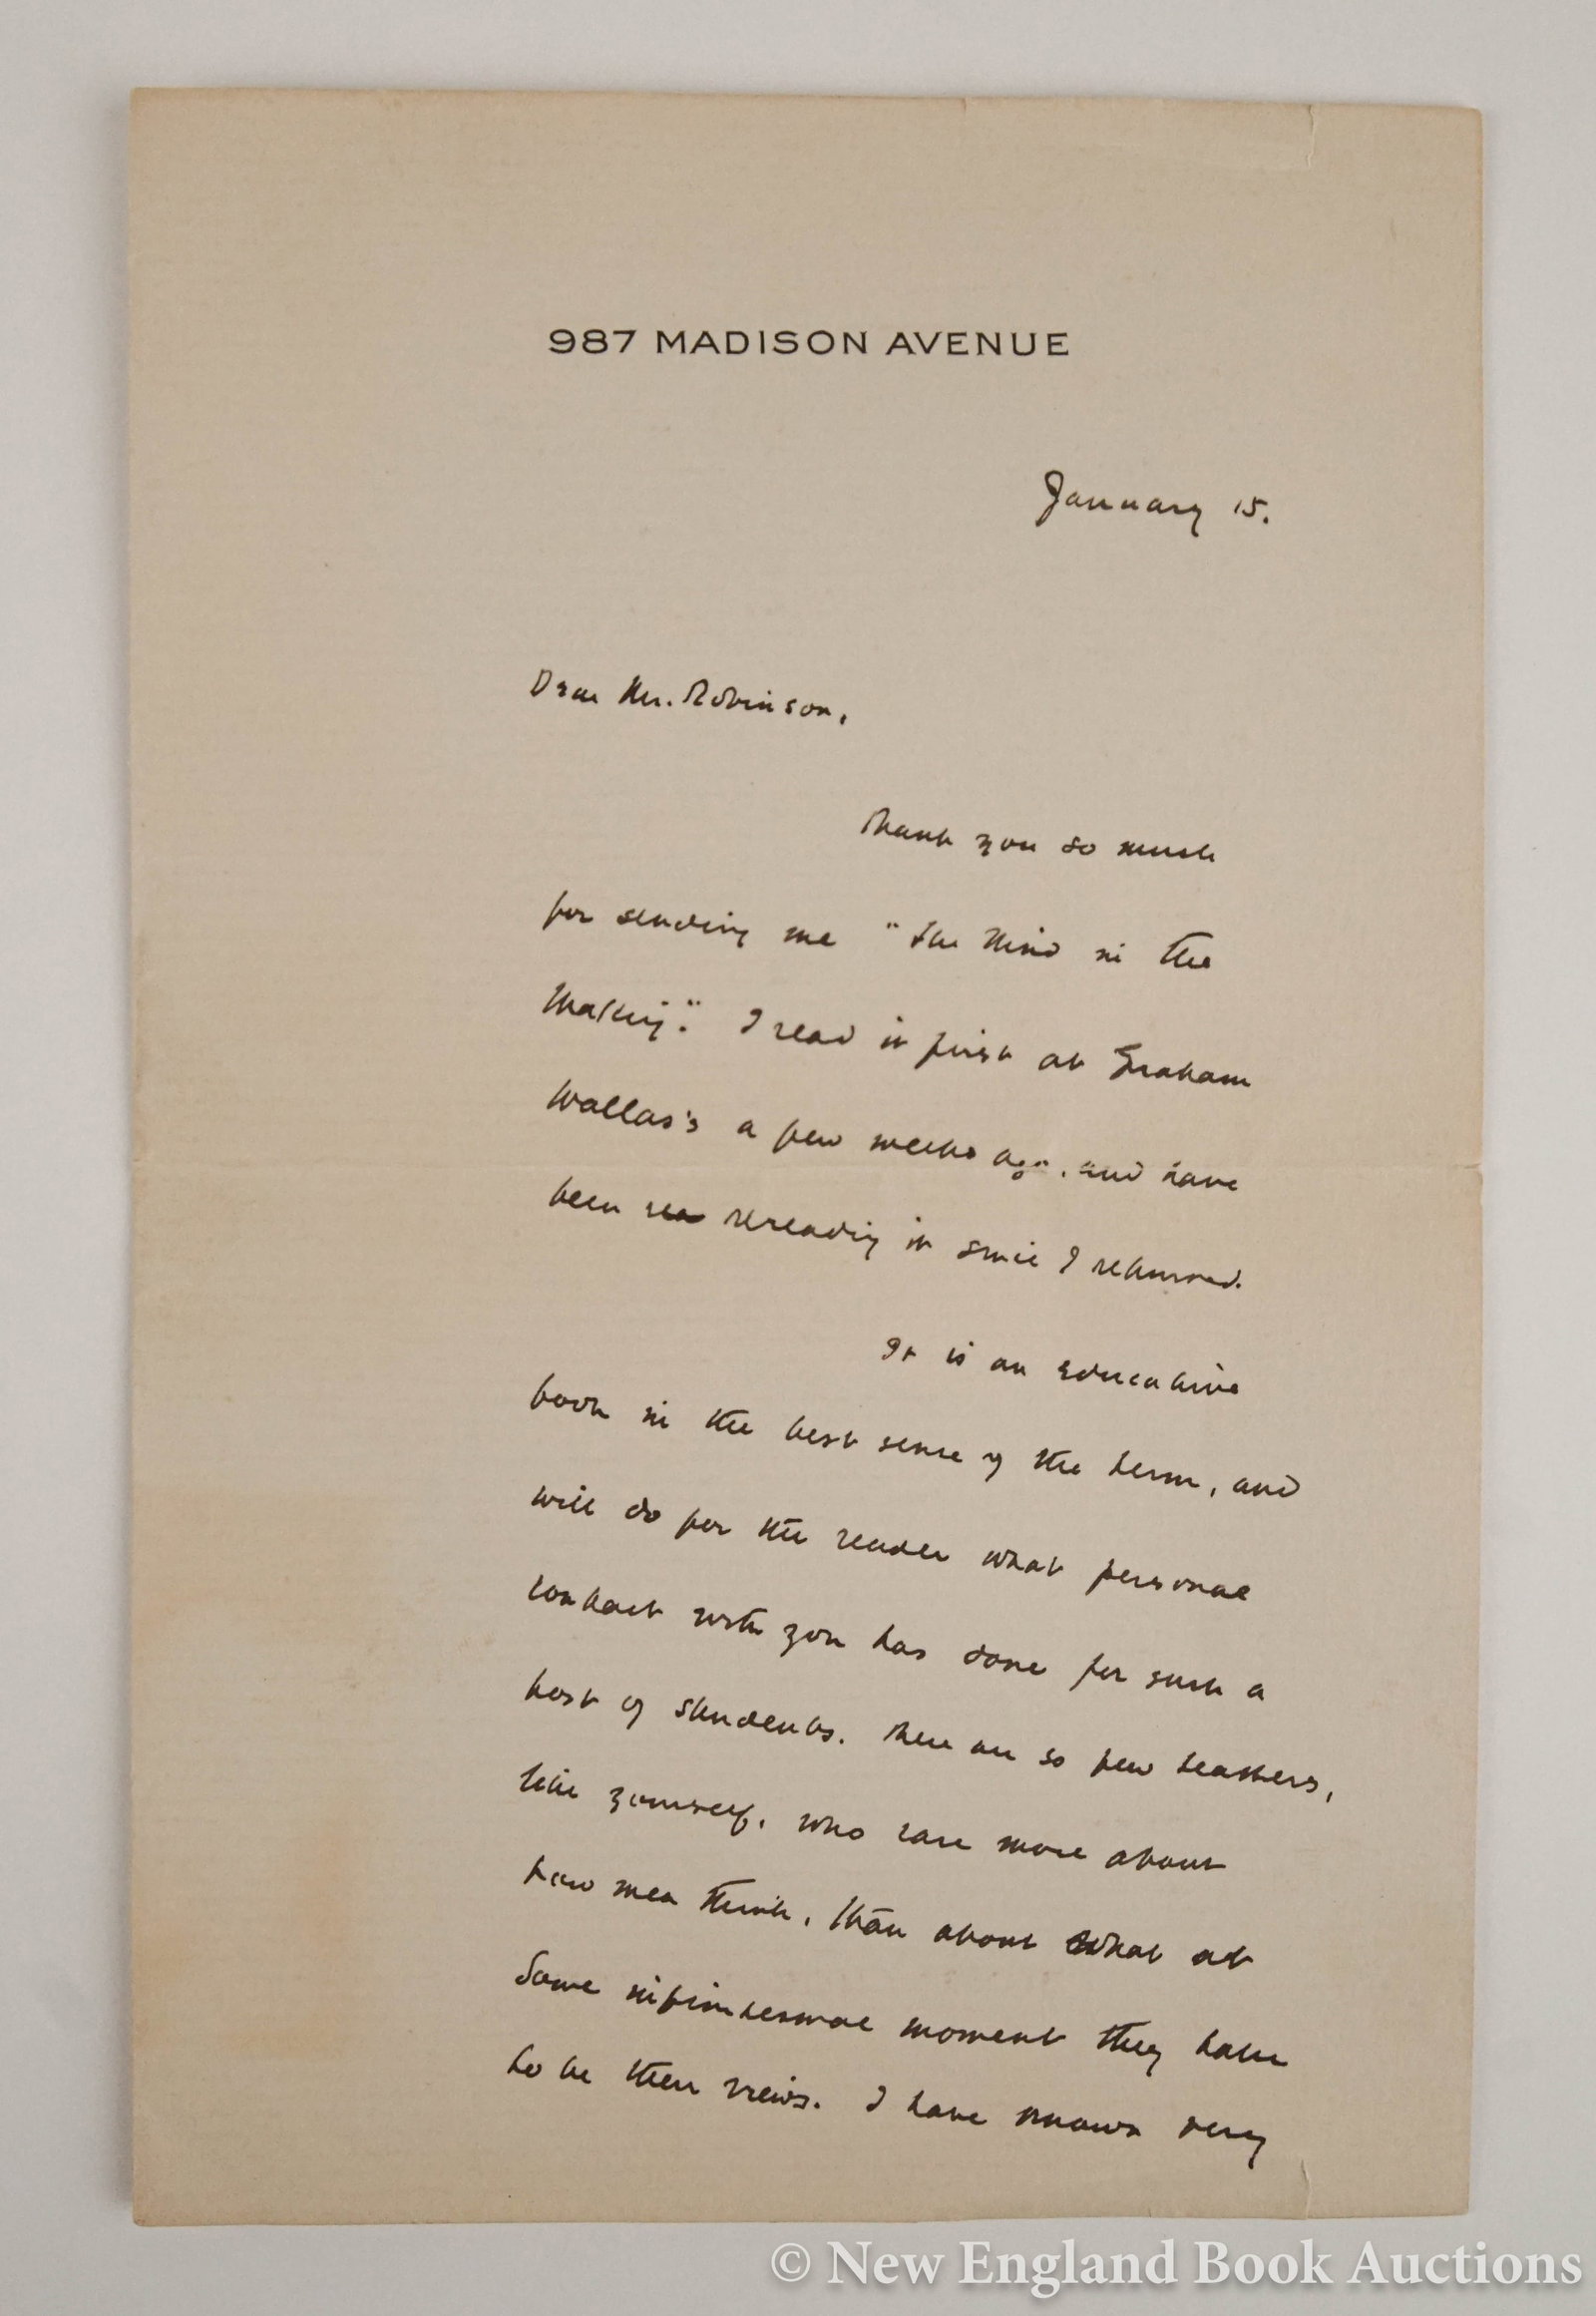 987 MADISON AVENUE
January 15.
Dear Mr. Robinson,
Thank you so much
for sending me "The Mind in the
Making". I read it first at Graham
Wallas's a few weeks ago, and have
been rea rereading it since I returned.
It is an educative
book in the best sense of the term, and
will do for the reader what personal
contact with you has done for such a
host of students. There are so few teachers,
like yourself, who care more about
how men think, than about what at
some infinitesmal moment they take
to be their views. I have known very
© New England Book Auctions